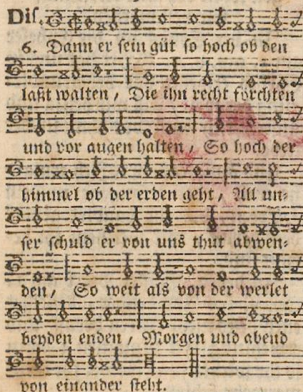 Dis.
6. Dann er sein güt so hoch ob den
laßt walten / Die ihn recht förchten
und vor augen halten / So hoch der
himmel ob der erden geht / All un-
ser schuld er von uns thut abwen-
den / So weit als von der werlet
beyden enden / Morgen und abend
von einander steht.